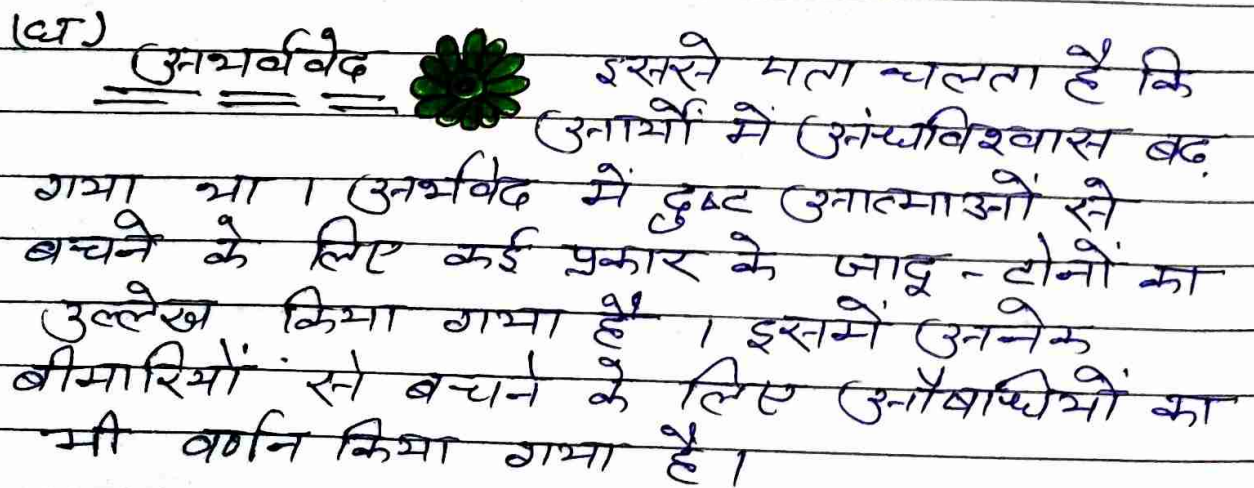 (घ)
अथर्ववेद इससे पता चलता है कि
आर्यों में अंधविश्वास बढ़
गया था । अर्थवेद में दुष्ट आत्माओं से
बचने के लिए कई प्रकार के जादू - टोनों का
उल्लेख किया गया है । इसमें अनेक
बीमारियों से बचने के लिए औषधियों का
भी वर्णन किया गया है ।